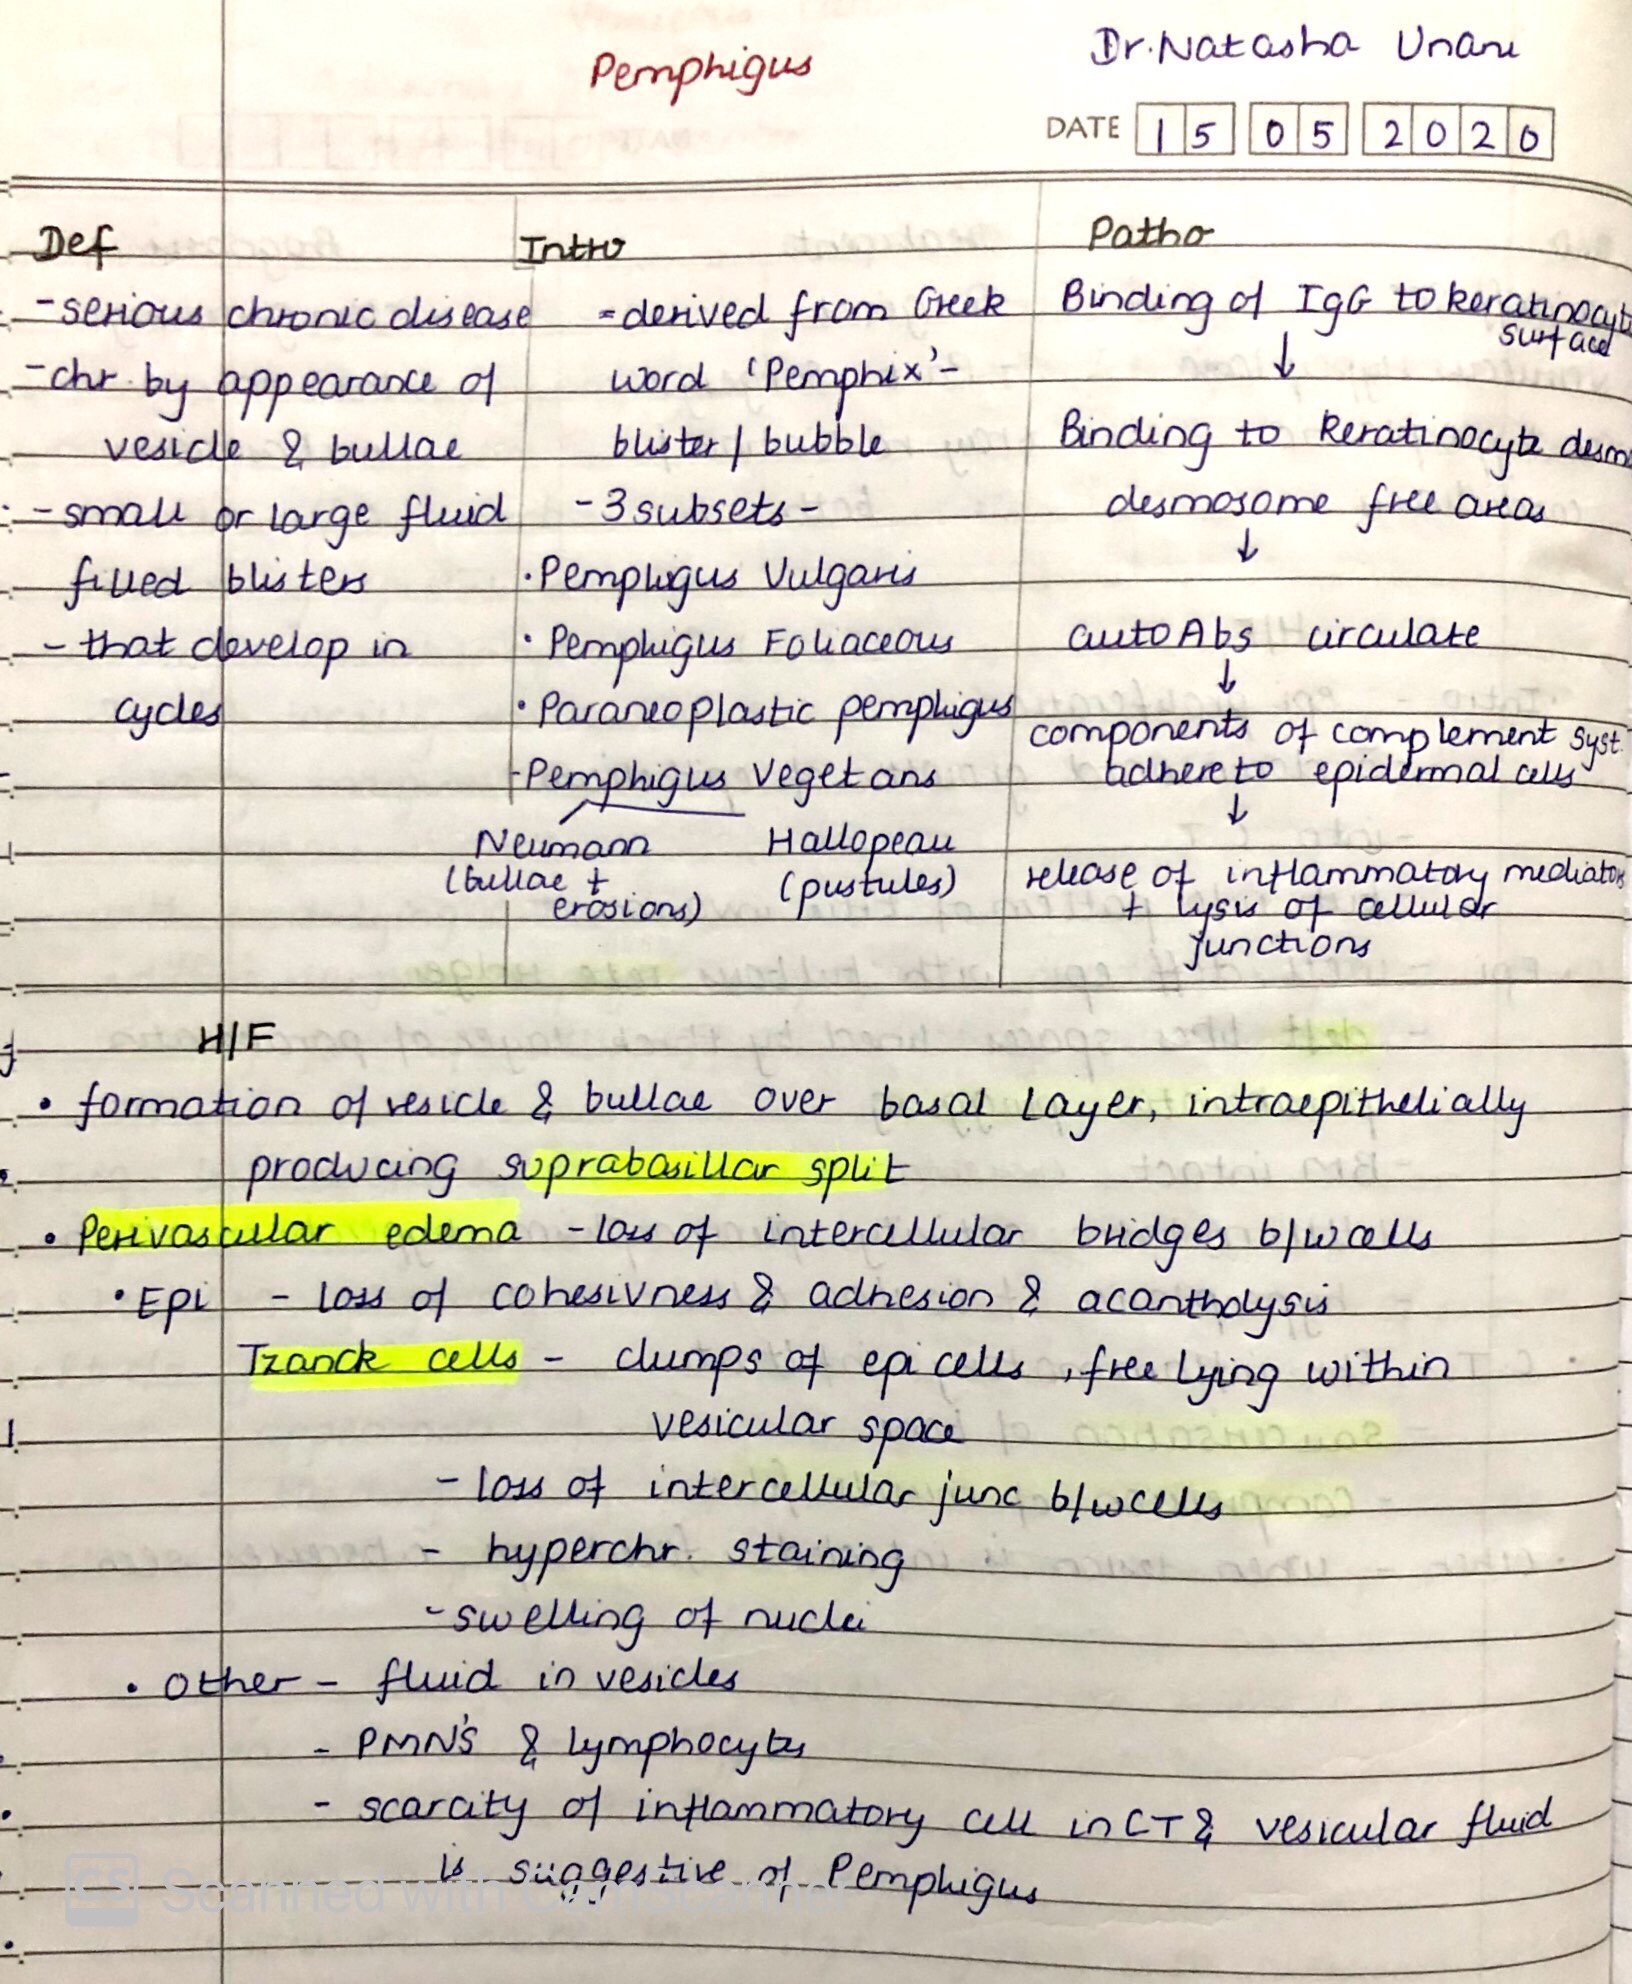 Pemphigus
Dr. Natasha Unani
DATE 15 05 2020
Def
- serious chronic disease
- chr. by appearance of
vesicle & bullae
- small or large fluid
filled blisters
- that develop in
cycles
Intro
- derived from Greek
word 'Pemphix' -
blister / bubble
- 3 subsets -
• Pemphigus Vulgaris
• Pemphigus Foliaceous
• Paraneoplastic pemphigus
- Pemphigus Vegetans
Neumann Hallopeau
(bullae + (pustules)
erosions)
Patho
Binding of IgG to keratinocyte
surface
↓
Binding to keratinocyte desm
desmosome free areas
↓
auto Abs circulate
↓
components of complement syst.
adhere to epidermal cells
↓
release of inflammatory mediators
+ lysis of cellular
junctions
H/F
• formation of vesicle & bullae over basal layer, intraepithelially
producing suprabasillar split
• Perivascular edema - loss of intercellular bridges b/w cells
• Epi - loss of cohesivness & adhesion & acantholysis
Tzanck cells - clumps of epi cells, free lying within
vesicular space
- loss of intercellular junc b/w cells
- hyperchr. staining
- swelling of nuclei
• Other - fluid in vesicles
- PMN's & lymphocytes
- scarcity of inflammatory cell in CT & vesicular fluid
is suggestive of Pemphigus
CS Scanned with CamScanner